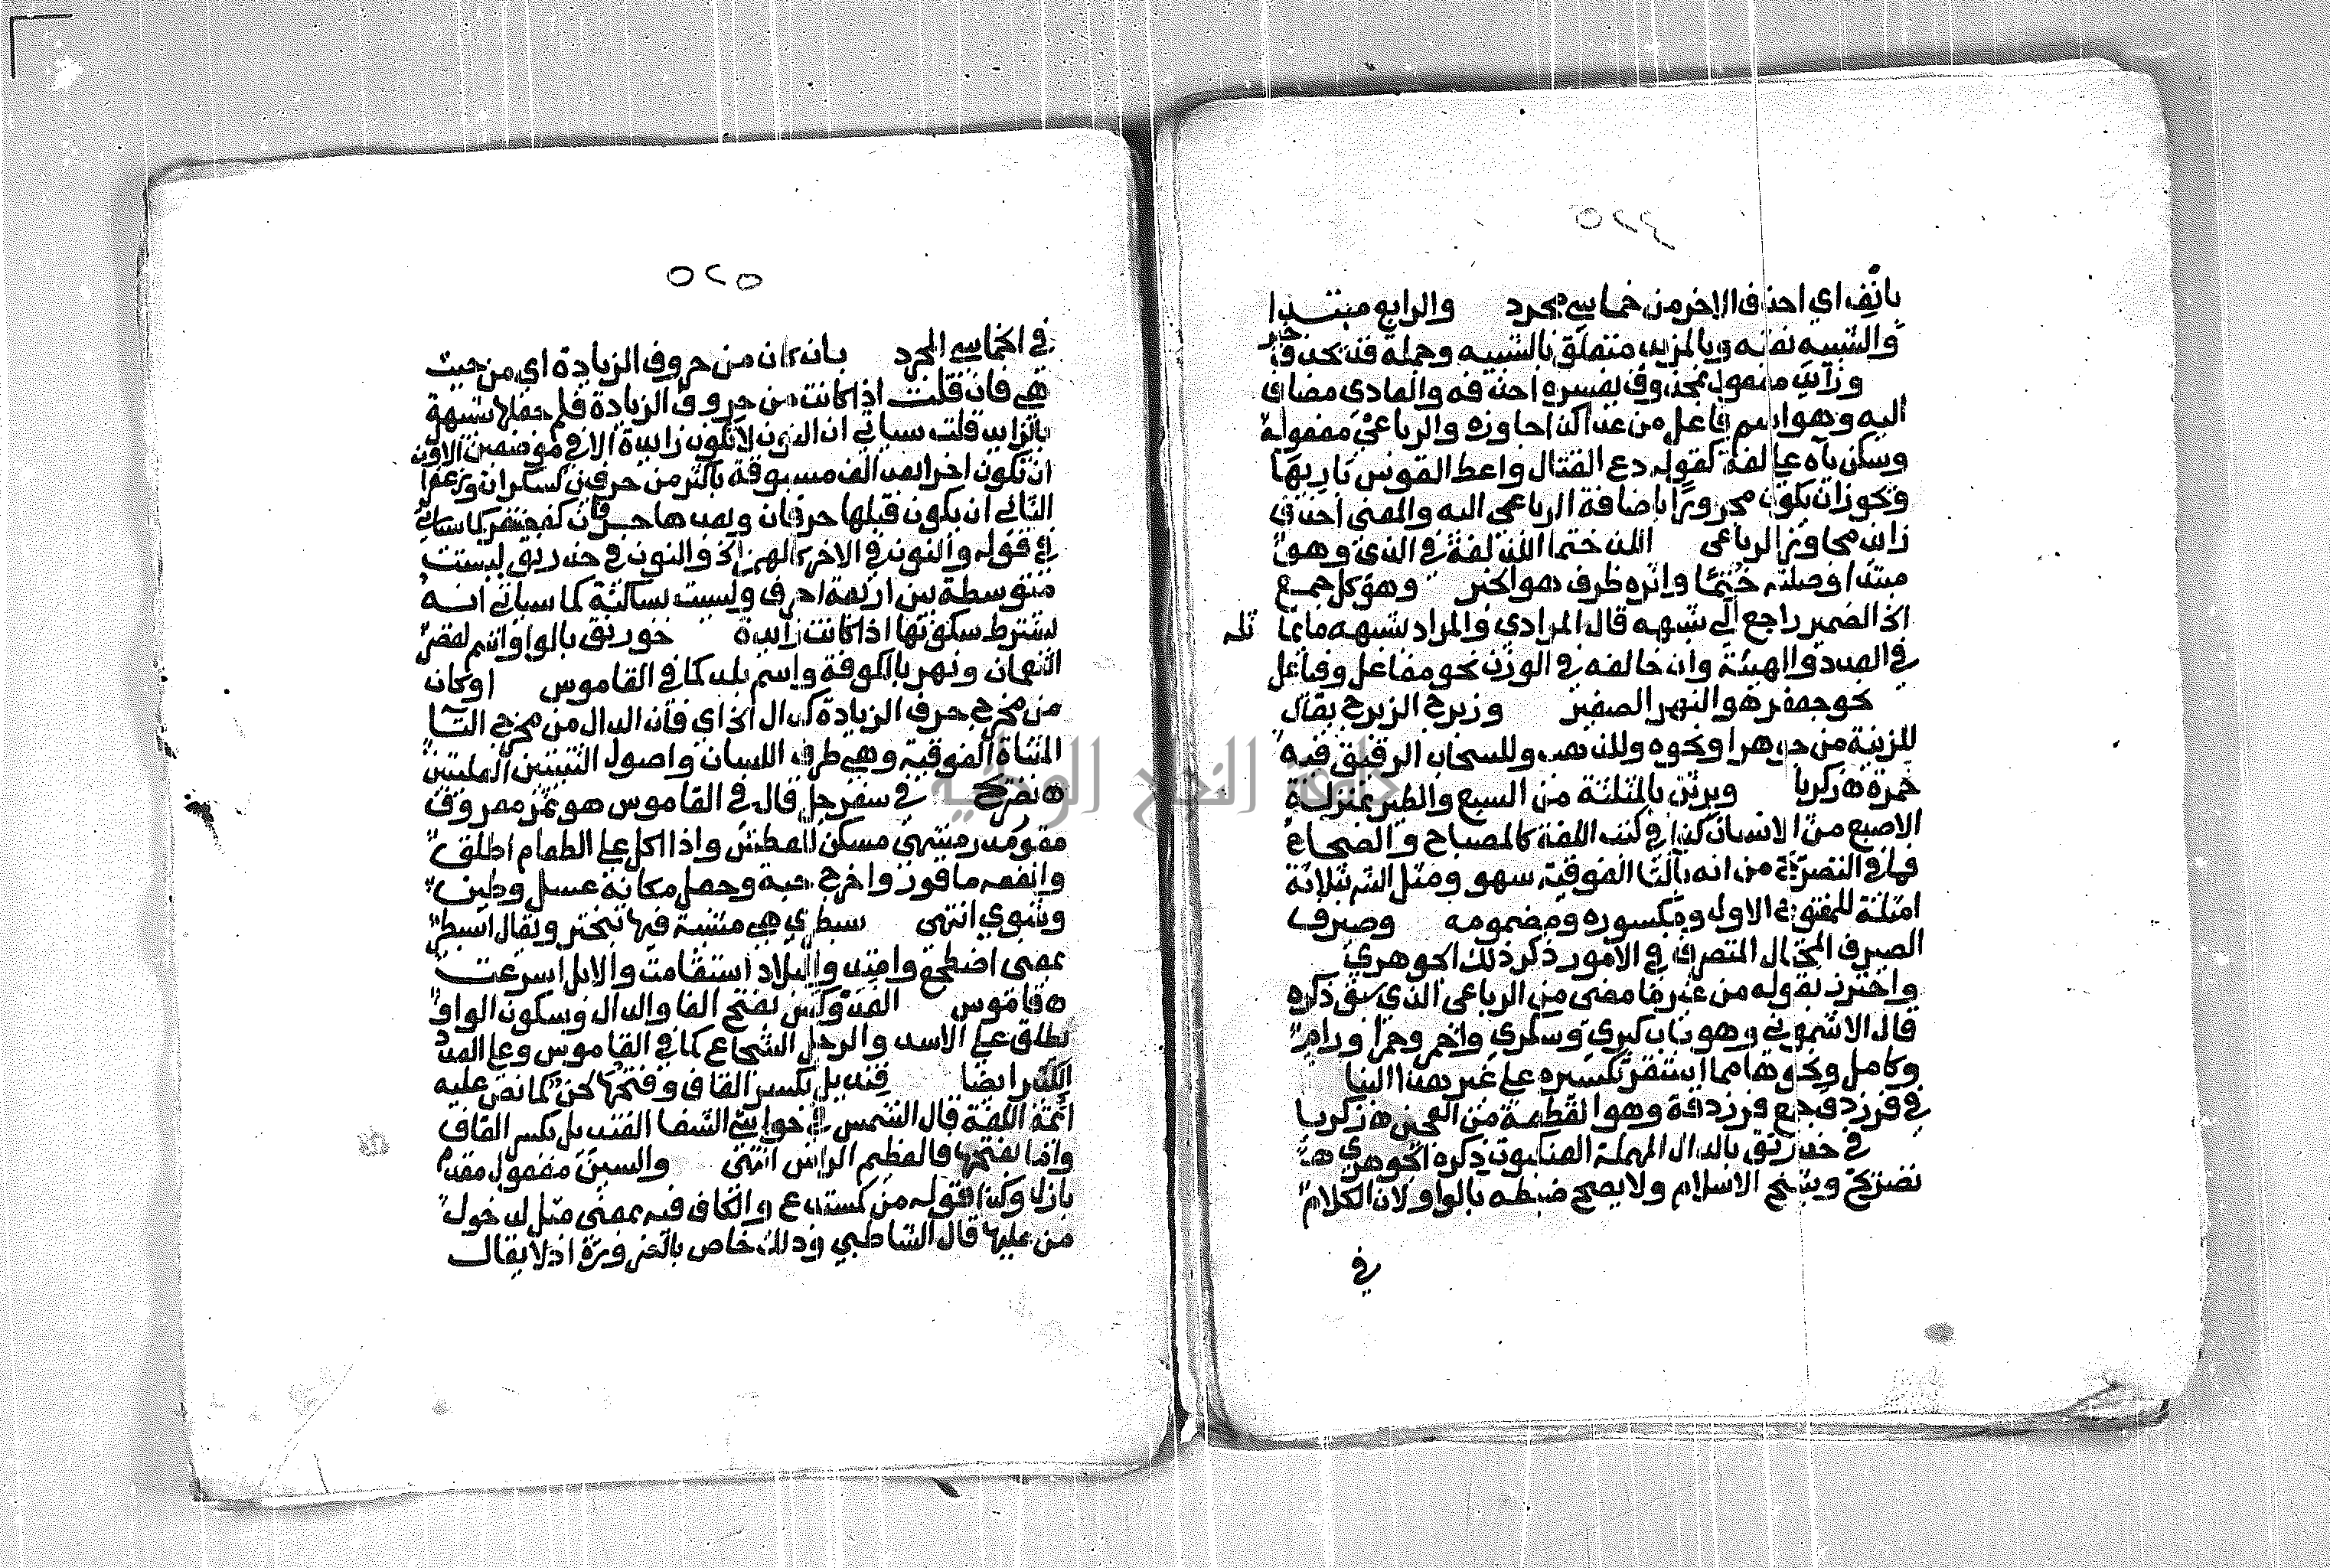 ٥٢٤
بانف اي احذف الاخر من خماسي مجرد والرابع مبتدا
والشبيه نعته وبالمزيد متعلق بالشبيه وجملة قد يحذف خبر
وزايد مفعول بمحذوف يفسره احذفه والعادي مضاف
اليه وهو اسم فاعل من عدا كذا جاوزه والرباعي مفعوله
وسكن ياه علي لغة كقوله دع القتال واعط القوس باريها
ويجوز ان يكون مجرورا باضافة الرباعي اليه والمعني احذف
زايد مجاوز الرباعي اللذ ختما اللذ لغة في الذي وهو
مبتدا وصلته ختما واثره ظرف هو الخبر وهو كل جمع
الخ الضمير راجع الي شبهه قال المرادي والمراد بشبهه ما يماثله
في العدد والهيئة وان خالفه في الوزن نحو مفاعل وفياعل
نحو جعفر هو النهر الصغير وزبرج الزبرج يقال
للزينة من جوهر او نحوه وللذهب وللسحاب الرقيق فيه
حمرة ه زكريا وبرثن بالمثلثة من السبع والطير بمنزلة
الاصبع من الانسان كذا في كتب اللغة كالمصباح والصحاح
فما في التصريح من انه بالتا الفوقية سهو ومثل الشر ثلاثة
امثلة للمفتوح الاول ومكسوره ومضمومه وصيرف
الصيرف المحتال المتصرف في الامور ذكر ذلك الجوهري
واحترز بقوله من غير ما مضي من الرباعي الذي سبق ذكره
قال الاشموني وهو باب كبري وسكري واحمر وحمرا ورام
وكامل ونحوها مما استقر تكسيره علي غير هذا البنا
في فرزدق جمع فرزدقة وهو القطعة من العجين ه زكريا
في خدرنق بالدال المهملة العنكبوت ذكره الجوهري ه
تصريح وشيخ الاسلام ولا يصح ضبطه بالواو لان الكلام
في
٥٢٥
في الخماسي المجرد بان كان من حروف الزيادة اي من حيث
هي فان قلت اذا كانت من حروف الزيادة فلم جعلها شبيهة
بالزايد قلت سياتي ان النون لا تكون زايدة الا في موضعين الاول
ان تكون اخرا بعد الف مسبوقة باكثر من حرفين كسكران وزعفرا
الثاني ان يكون قبلها حرفان وبعدها حرفان كغضنفر كما سياتي
في قوله والنون في الاخر كالهمز الخ والنون في خدرنق ليست
متوسطة بين اربعة احرف وليست ساكنة كما سياتي انه
يشترط سكونها اذا كانت زايدة خورنق بالواو اسم لقصر
النعمان ونهر بالكوفة واسم بلد كما في القاموس او كان
من مخرج حرف الزيادة كدال الخ اي فان الدال من مخرج التا
المثناة الفوقية وهي طرف اللسان واصول الثنيتين العليتين
ه تصريح في سفرجل قال في القاموس هو ثمر معروف
مقو مدر منتهي مسكن للعطش واذا اكل علي الطعام اطلق
وانفعه ما قور واخرج حبه وجعل مكانه عسل وطين
وشوي انتهي سبطري هي مشية فيها تبختر ويقال اسبطر
بمعني اضطجع وامتد والبلاد استقامت والابل اسرعت
ه قاموس الفدوكس بفتح الفا والدال وسكون الواو
يطلق علي الاسد والرجل الشجاع كما في القاموس وعلي العدد
الكثير ايضا قنديل بكسر القاف وفتحها لحن كما نص عليه
ائمة اللغة قال الشمس في حواشي الشفا القنديل بكسر القاف
واما بفتحها فالعظيم الراس انتهي والسين مفعول مقدم
بازل وكذا قوله من كستدع والكاف فيه بمعني مثل لدخول
من عليها قال الشاطبي وذلك خاص بالضرورة اذ لا يقال